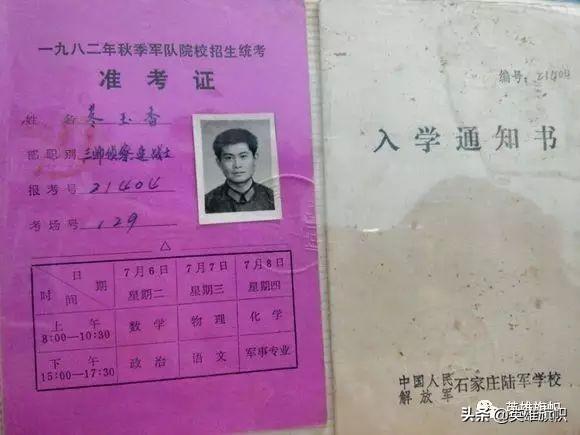 一九八二年秋季军队院校招生统考
准考证
姓 名 玉香
部职别 三师侦察连战士
报考号 21404
考场号 129
日期 时间 7月6日 星期二 7月7日 星期三 7月8日 星期四
上午 8:00—10:30 数学 物理 化学
下午 15:00—17:30 政治 语文 军事专业
编号: 21404
入学通知书
中国人民解放军石家庄陆军学校
英雄旗帜
头条 @英雄旗帜